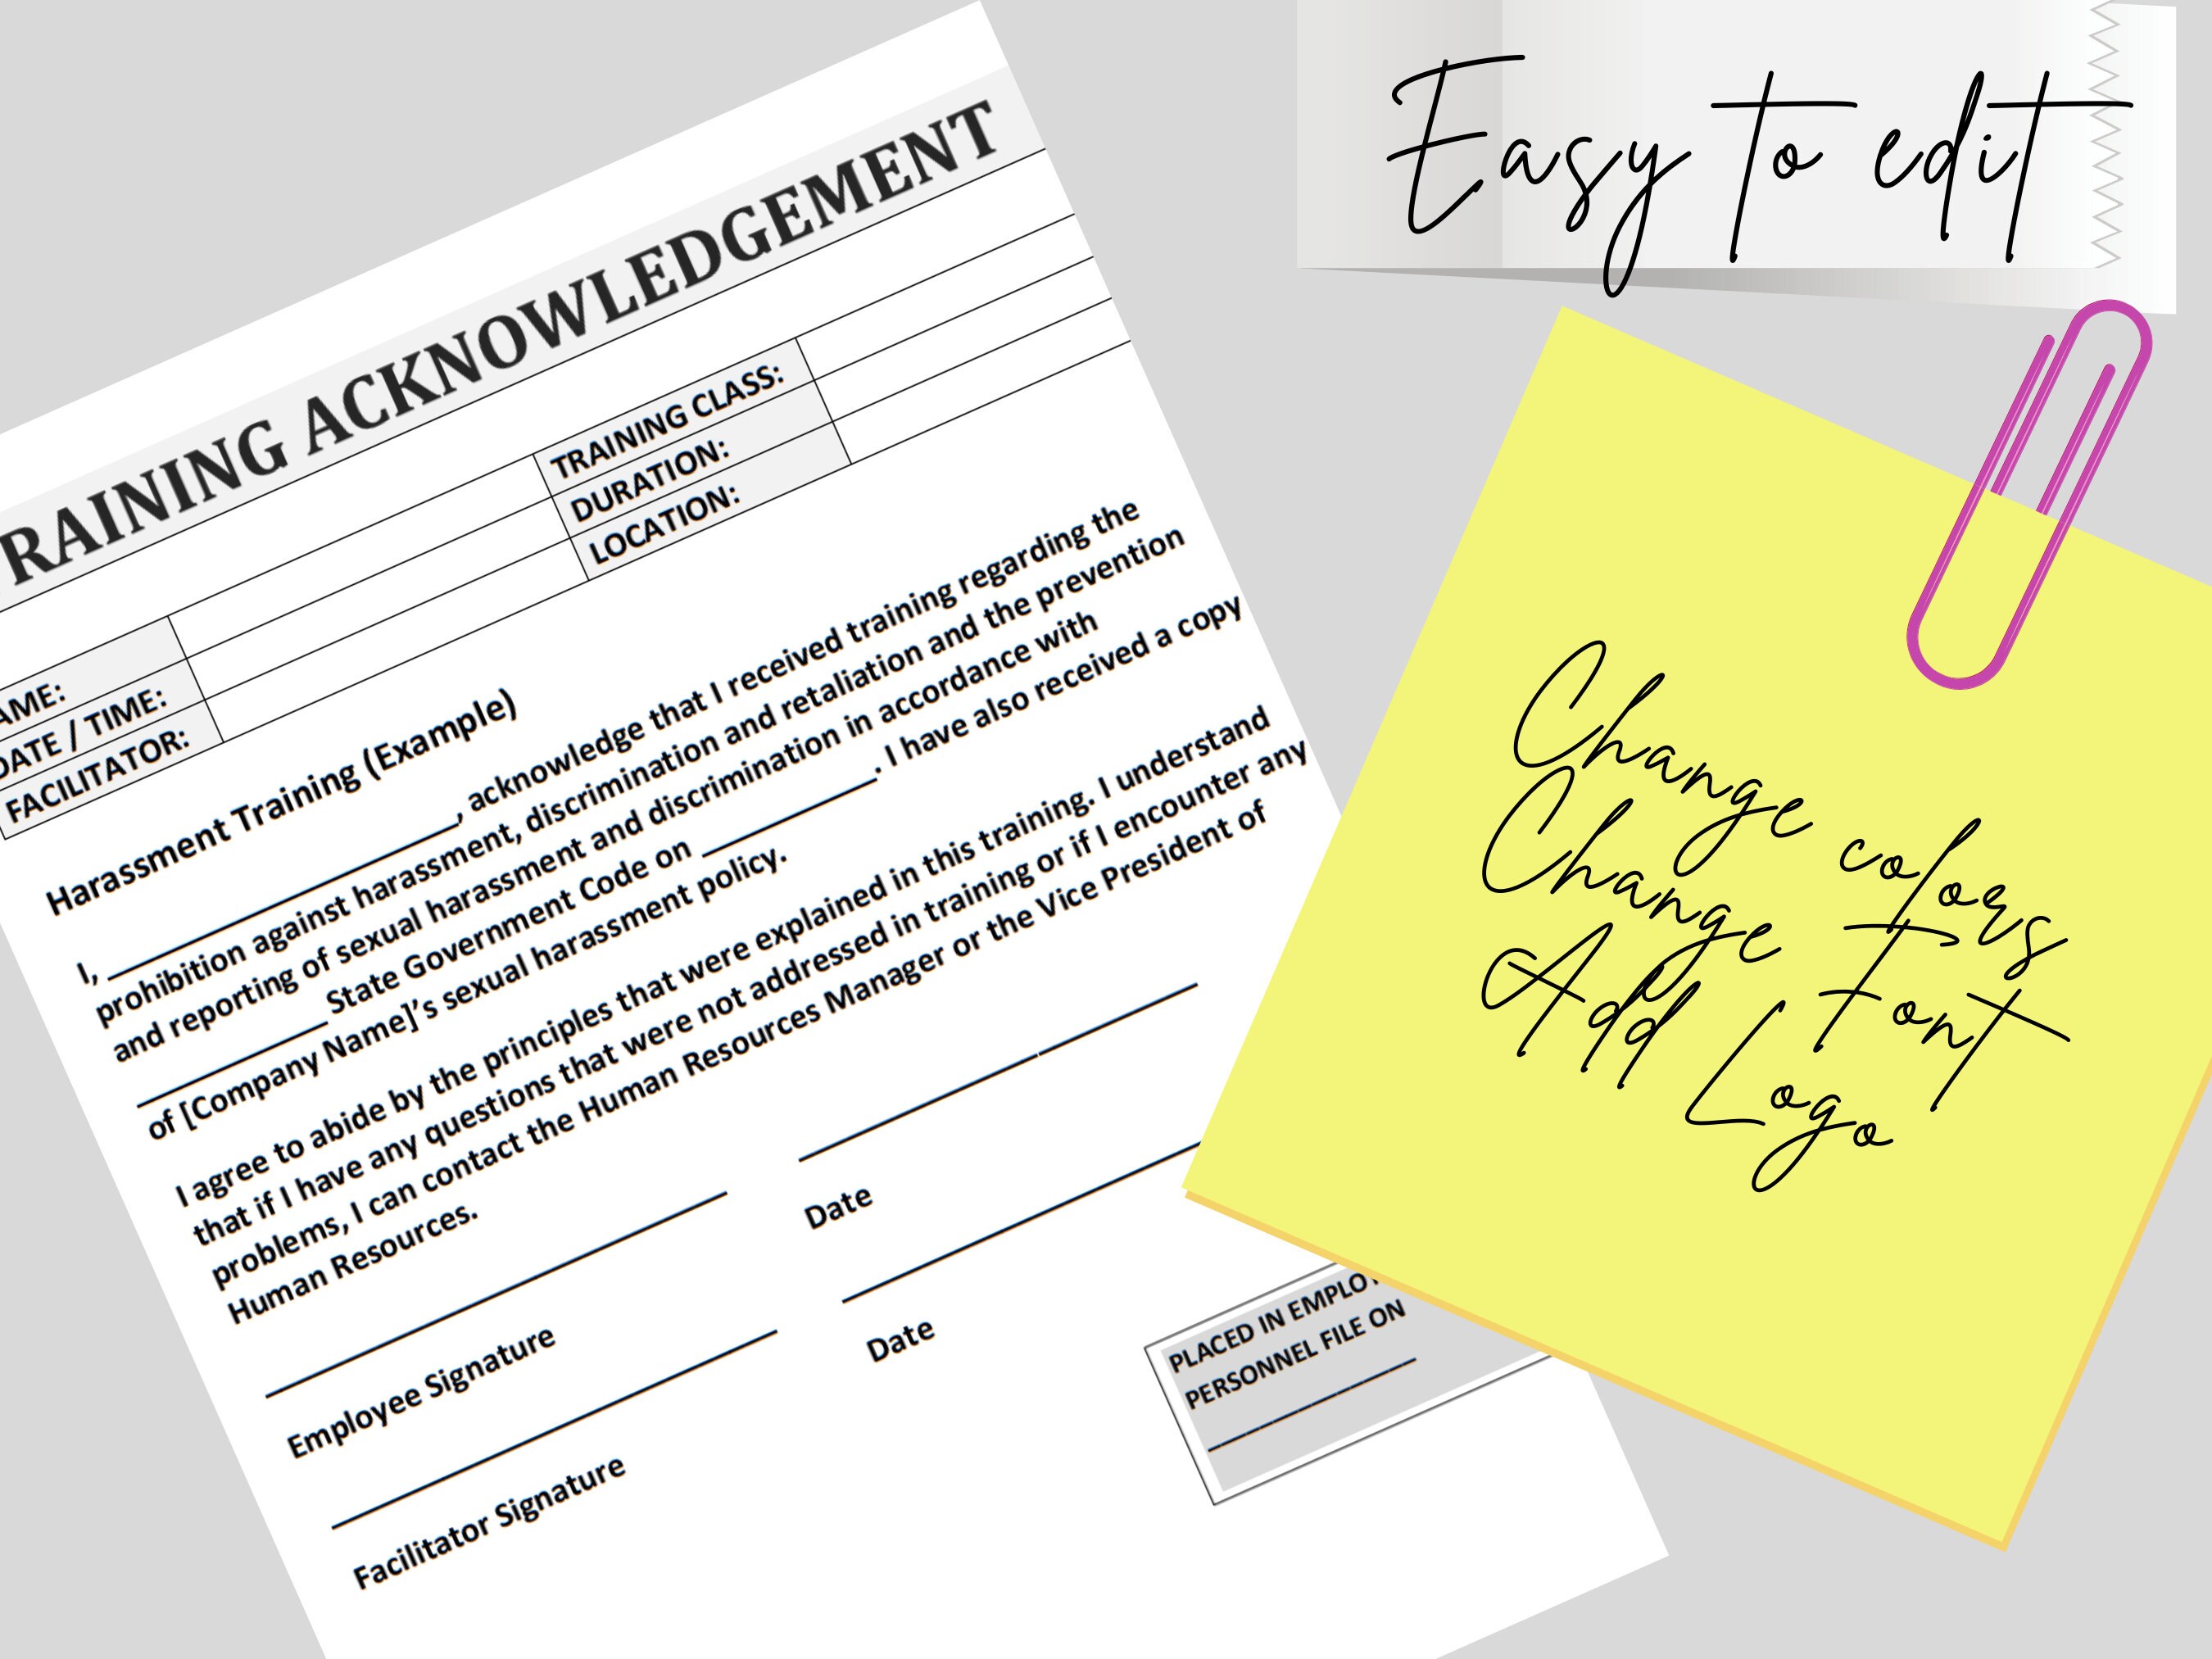 RAINING ACKNOWLEDGEMENT
AME:
DATE / TIME:
FACILITATOR:
TRAINING CLASS:
DURATION:
LOCATION:
Harassment Training (Example)
I, ____________________, acknowledge that I received training regarding the
prohibition against harassment, discrimination and retaliation and the prevention
and reporting of sexual harassment and discrimination in accordance with
__________ State Government Code on __________. I have also received a copy
of [Company Name]’s sexual harassment policy.
I agree to abide by the principles that were explained in this training. I understand
that if I have any questions that were not addressed in training or if I encounter any
problems, I can contact the Human Resources Manager or the Vice President of
Human Resources.
Employee Signature
Date
Facilitator Signature
Date
PLACED IN EMPLOY
PERSONNEL FILE ON
Easy to edit
Change colors
Change Font
Add Logo